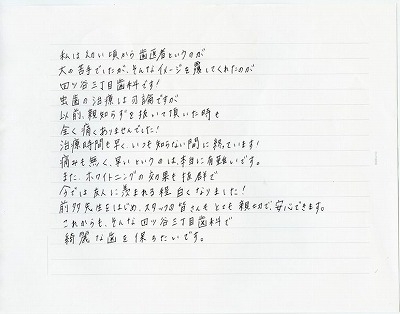 私は幼い頃から歯医者というのが
大の苦手でしたが、そんなイメージを覆してくれたのが
四ツ谷三丁目歯科です!
虫歯の治療は勿論ですが
以前、親知らずを抜いて頂いた時も
全く痛くありませんでした!
治療時間も早く、いつも知らない間に終っています!
痛みも無く、早いというのは本当に有難いです。
また、ホワイトニングの効果も抜群で
今では友人に羨まれる程白くなりました!
前多先生をはじめ、スタッフの皆さんもとても親切で、安心できます。
これからも、そんな四ツ谷三丁目歯科で
綺麗な歯を保ちたいです。